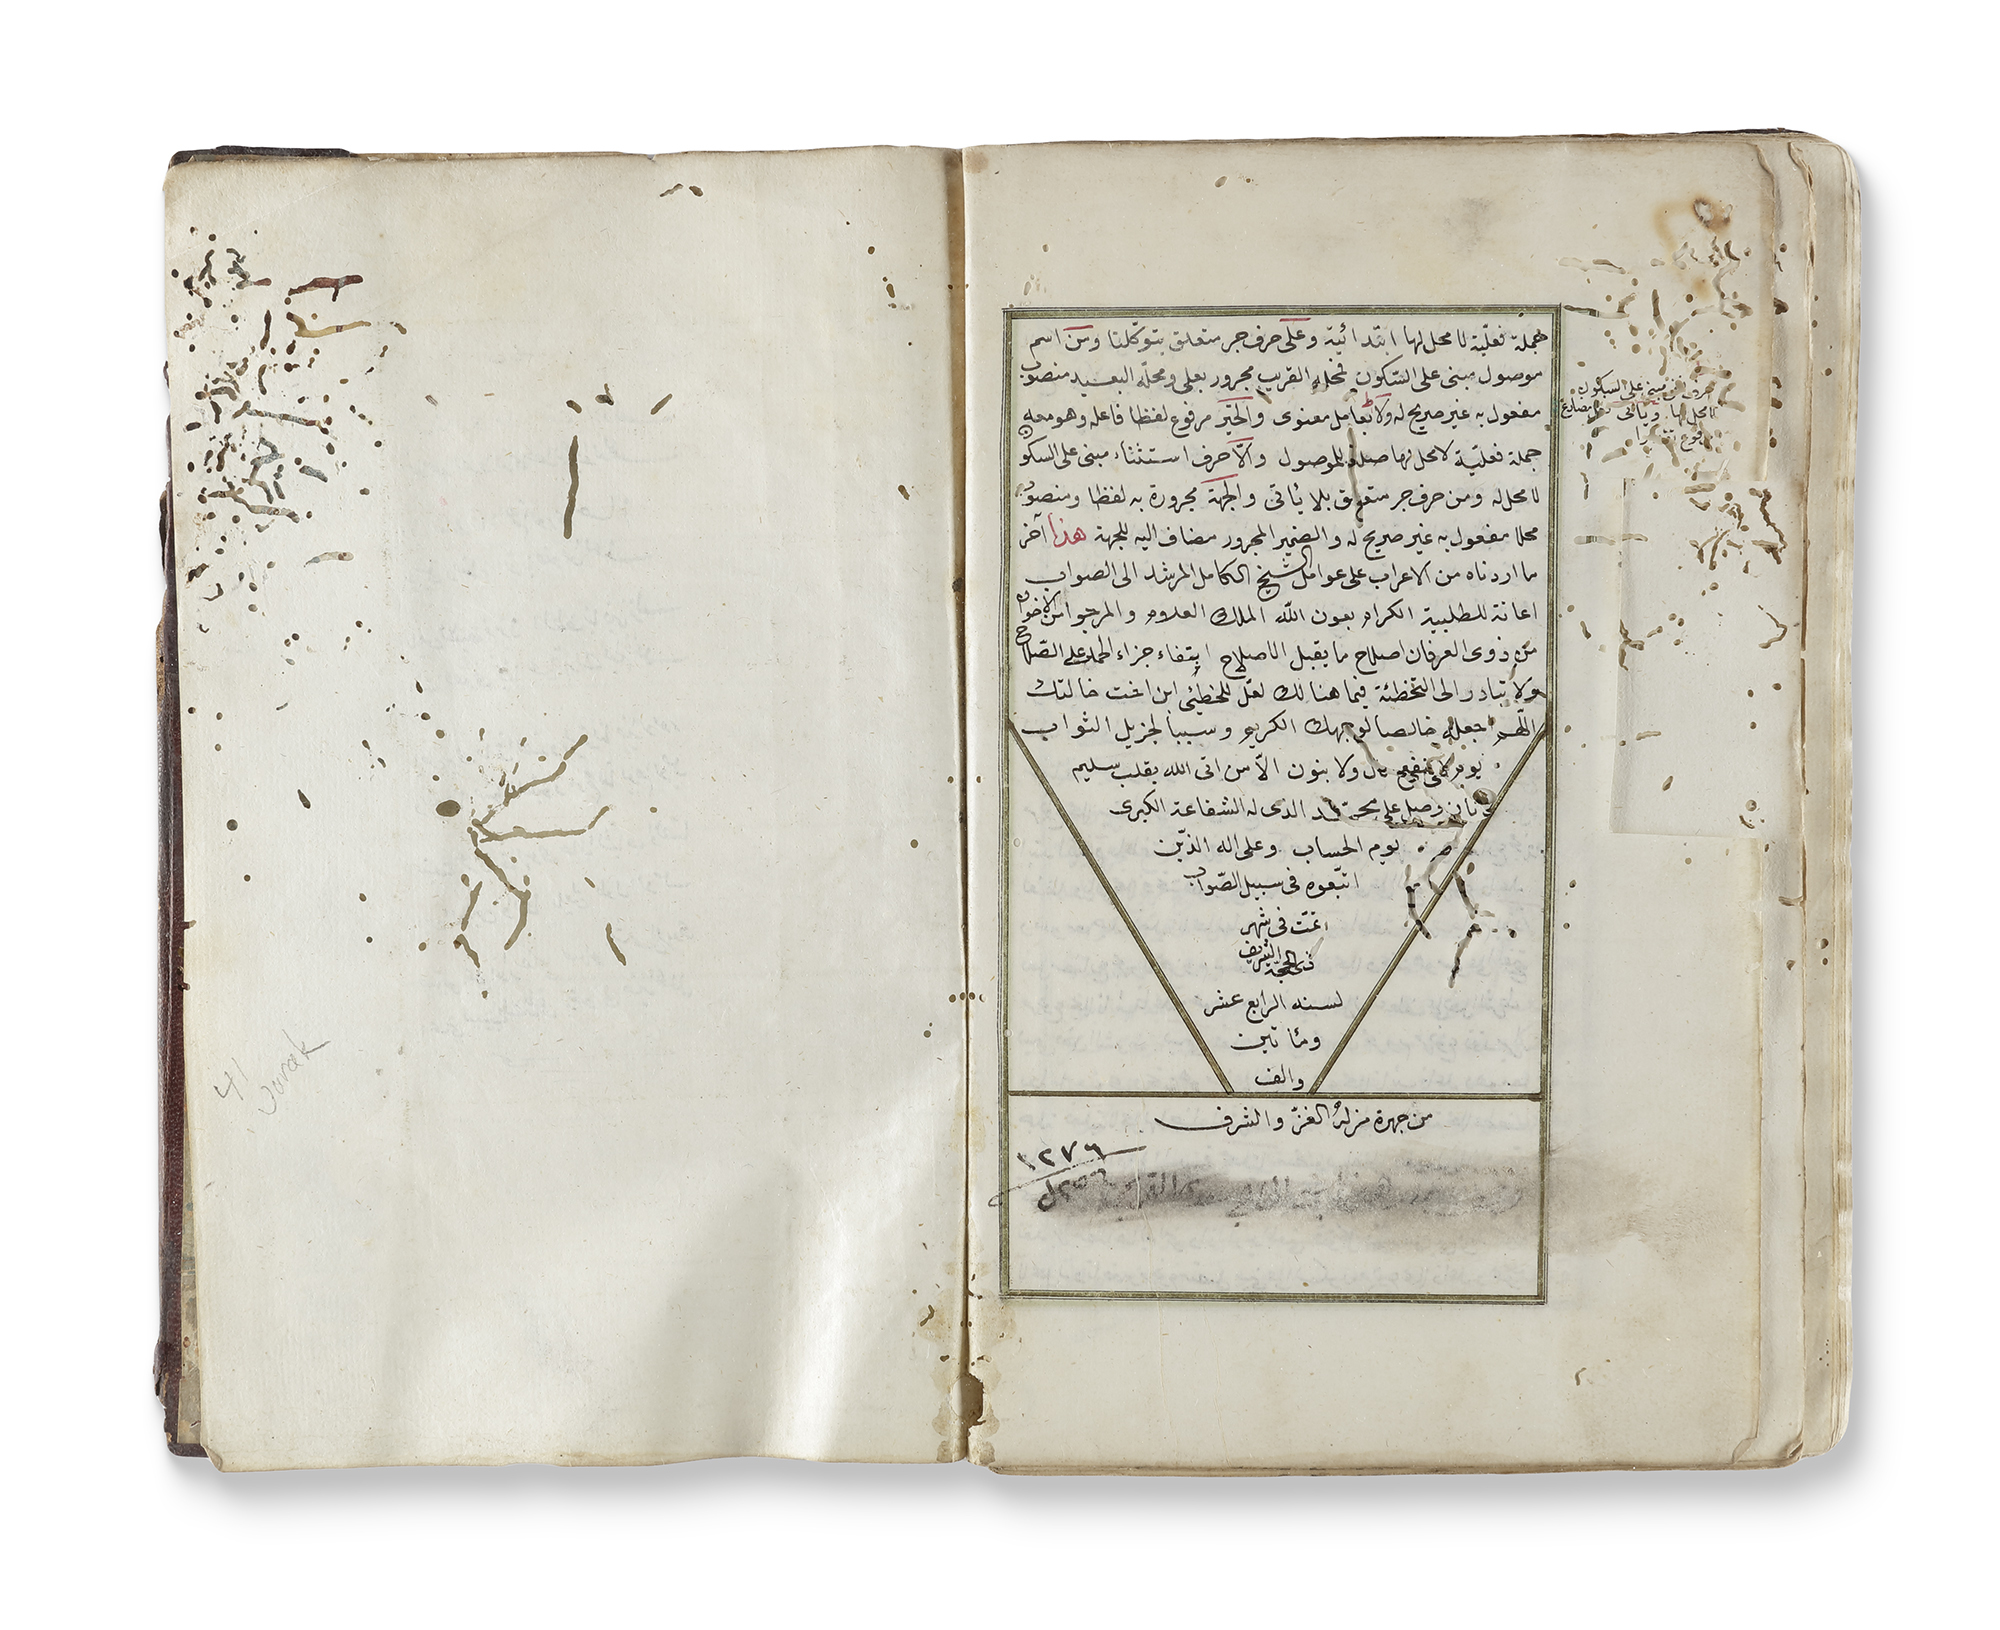 جملة فعليّة لا محل لها ابتدائيّة وعلى حرف جر متعلق بتوكلنا ومن اسم
موصول مبنى على السّكون فمحله القريب مجرور بعلى ومحلّه البعيد منصوب
مفعول به غير صريح له ولا بعامل معنوى والخير مرفوع لفظا فاعله وهو معه
جملة فعليّة لا محل لها صلة للموصول والّا حرف استثناء مبنى على السكون
لا محل له ومن حرف جر متعلق بلا يأتى والجهة مجرورة به لفظا ومنصوب
محلا مفعول به غير صريح له والضمير المجرور مضاف اليه للجهة هذا آخر
ما اردناه من الاعراب على عوامل الشيخ الكامل المرشد الى الصواب
اعانة للطلبية الكرام بعون الله الملك العلام والمرجو من الاخوان
من ذوى العرفان اصلاح ما يقبل الاصلاح ابتغاء جزاء الحمد على الصّلاح
ولا تبادر الى التخطئة فيما هنالك لعلّ للمخطئ ابن اخت خالتك
اللّهم اجعله خالصا لوجهك الكريم وسببا لجزيل الثواب
يوم لا ينفع مال ولا بنون الّا من اتى الله بقلب سليم
وصل على محمد الذى له الشفاعة الكبرى
يوم الحساب وعلى اله الذّين
اتبّعوه فى سبيل الصّواب
تمّت فى شهر
ذى الحجّة الشريف
لسنه الرابع عشر
ومأتين
والف
من جهرة منزله العزّ والشرف
١٢٧٦
حرف مبنى على السكون
لا محل لها ويأتى فعل مضارع
41
Varak